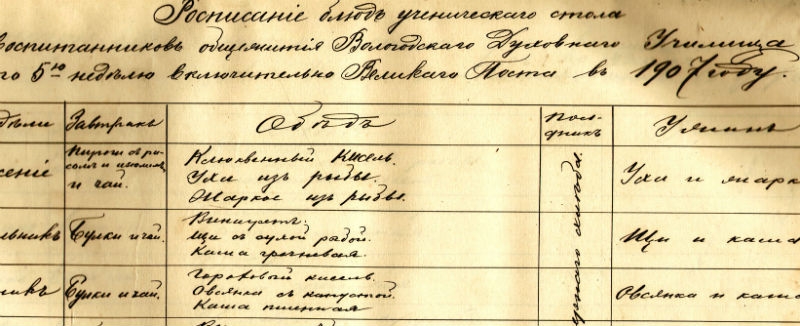 Росписаніе блюдъ ученическаго стола
Воспитанниковъ общежитія Вологодскаго Духовнаго Училища
го 5ую недѣлю включительно Великаго Поста въ 1907 году.
дѣли Завтракъ Обѣдъ Пол-
дникъ Ужинъ
Пироги съ ри-
сомъ и
и чай.
Клюквенный Кисель.
Уха изъ рыбы.
Жаркое изъ рыбы.
сеніе
Уха и жарк
льникъ
Булки и чай.
Винигретъ.
Щи съ сухой рыбой.
Каша гречневая.
Щи и каша
никъ
Булки и чай.
Гороховый кисель.
Овсянка съ капустой.
Каша пшенная
Овсянка и каш
чернаго хлѣба.